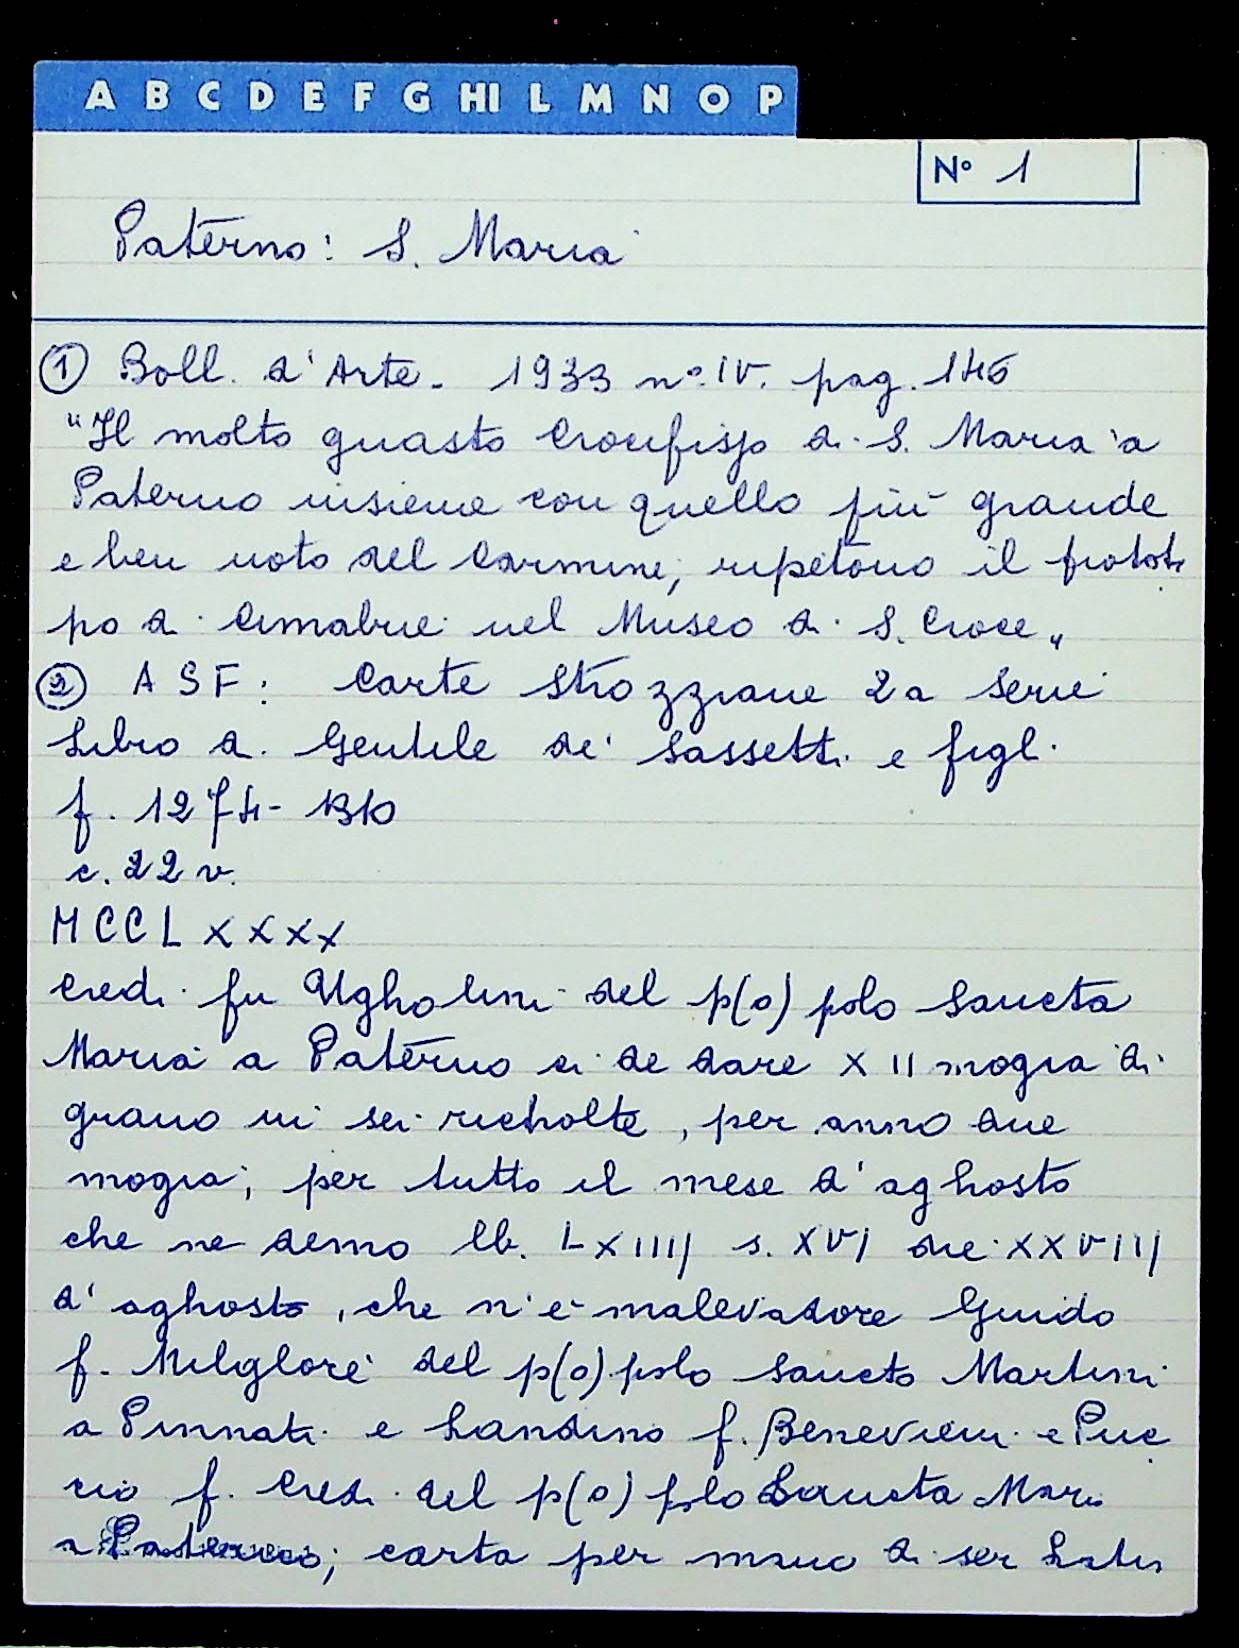 A B C D E F G HI L M N O P
Nº 1
Paterno: S. Maria
① Boll. d'Arte - 1933 nº IV. pag. 146
"Il molto guasto Crocifisso di S. Maria a
Paterno insieme con quello più grande
e ben noto del Carmine, ripetono il prototi
po di Cimabue nel Museo di S. Croce„
② ASF: Carte Strozziane 2a serie
Libro di Gentile de' Sassetti e figli
f. 1274-1310
c. 22 v.
MCCLXXXX
Credi fu Ugholini del p(o)polo Sancta
Maria a Paterno ci de dare XII mogia di
grano in sei richolte, per anno due
mogia; per tutto il mese d'aghosto
che ne demo lb. LXIIIJ s. XVI die XXVIIJ
d'aghosto, che n'è malevadore Guido
f. Milglore del p(o)polo Sancto Martini
a Pinnati e Landino f. Benevieni e Puc
cio f. Credi del p(o)polo Sancta Mari
a Paterno; carta per mano di ser Latin